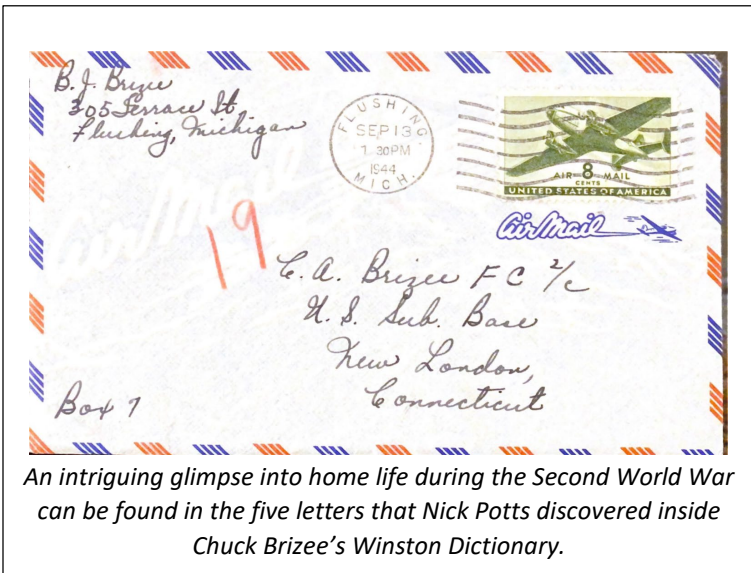 B. J. Brizee
305 Terrace St.
Flushing, Michigan
FLUSHING,
SEP 13
1 30PM
1944
MICH.
AIR 8 MAIL
CENTS
UNITED STATES OF AMERICA
Air Mail
Air Mail
19
C. A. Brizee F C 2/c
U. S. Sub. Base
New London,
Connecticut
Box 7
An intriguing glimpse into home life during the Second World War
can be found in the five letters that Nick Potts discovered inside
Chuck Brizee’s Winston Dictionary.